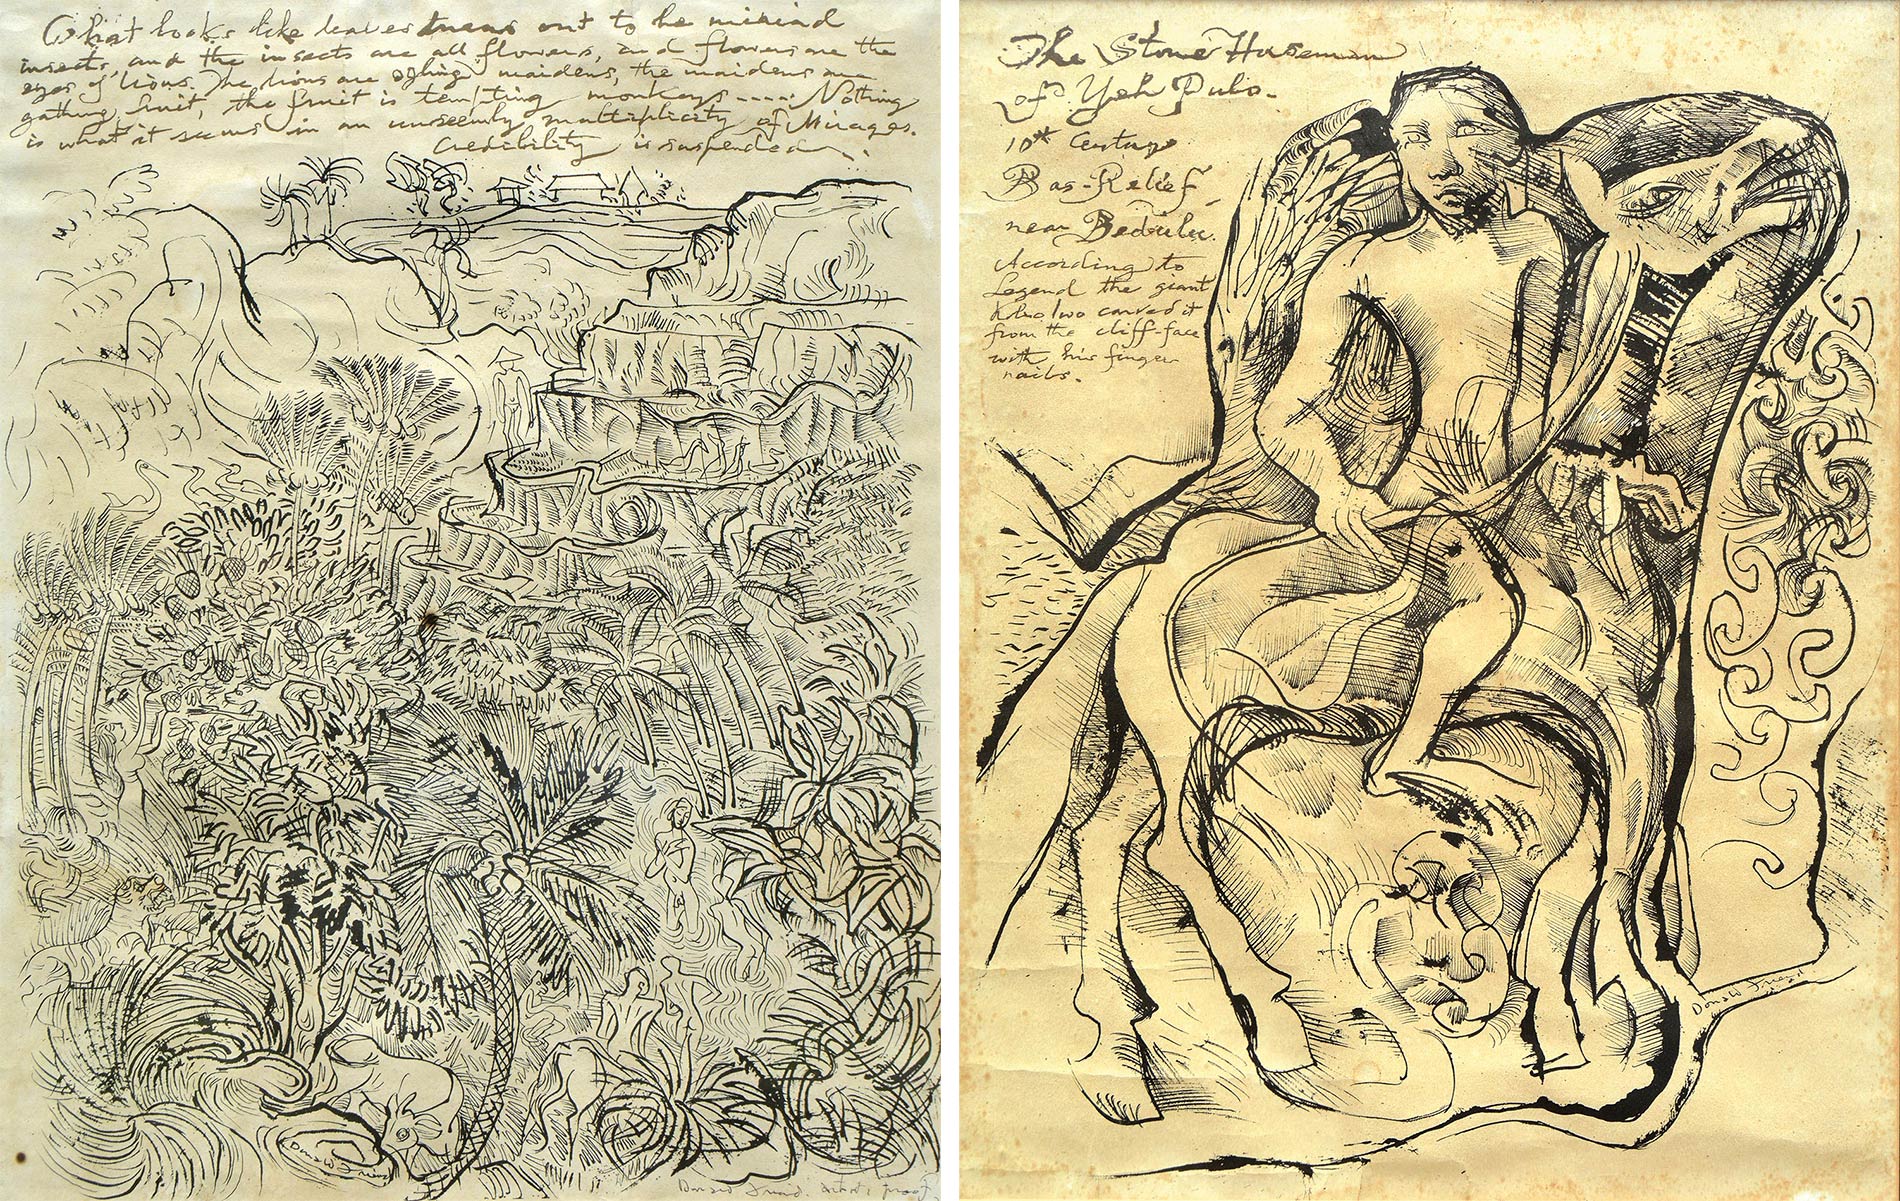 What looks like leaves turns out to be myriad
insects, and the insects are all flowers, and flowers are the
eyes of lions. The lions are ogling maidens, the maidens are
gathing fruit, the fruit is tempting monkeys ---- Nothing
is what it seems in an unseemly multiplicity of Mirages.
Credibility is suspended
Donald Friend
Donald Friend. Artist's proof
The Stone Horseman
of Yeh Pulo.
10th Century
Bas-Relief
near Bedulu.
According to
Legend the giant
Kbo Iwo carved it
from the cliff-face
with his finger
nails.
Donald Friend